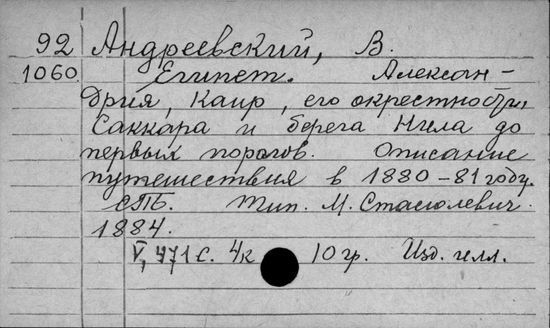 92 Андреевский, В.
1060 Египет. Алексан-
дрия, Каир, его окрестности,
Саккара и берега Нила до
первых порогов. Описание
путешествия в 1880-81 году.
СПБ. Тип. М. Стасюлевич.
1884.
V, 471 с. 4к 10 гр. Изд. илл.